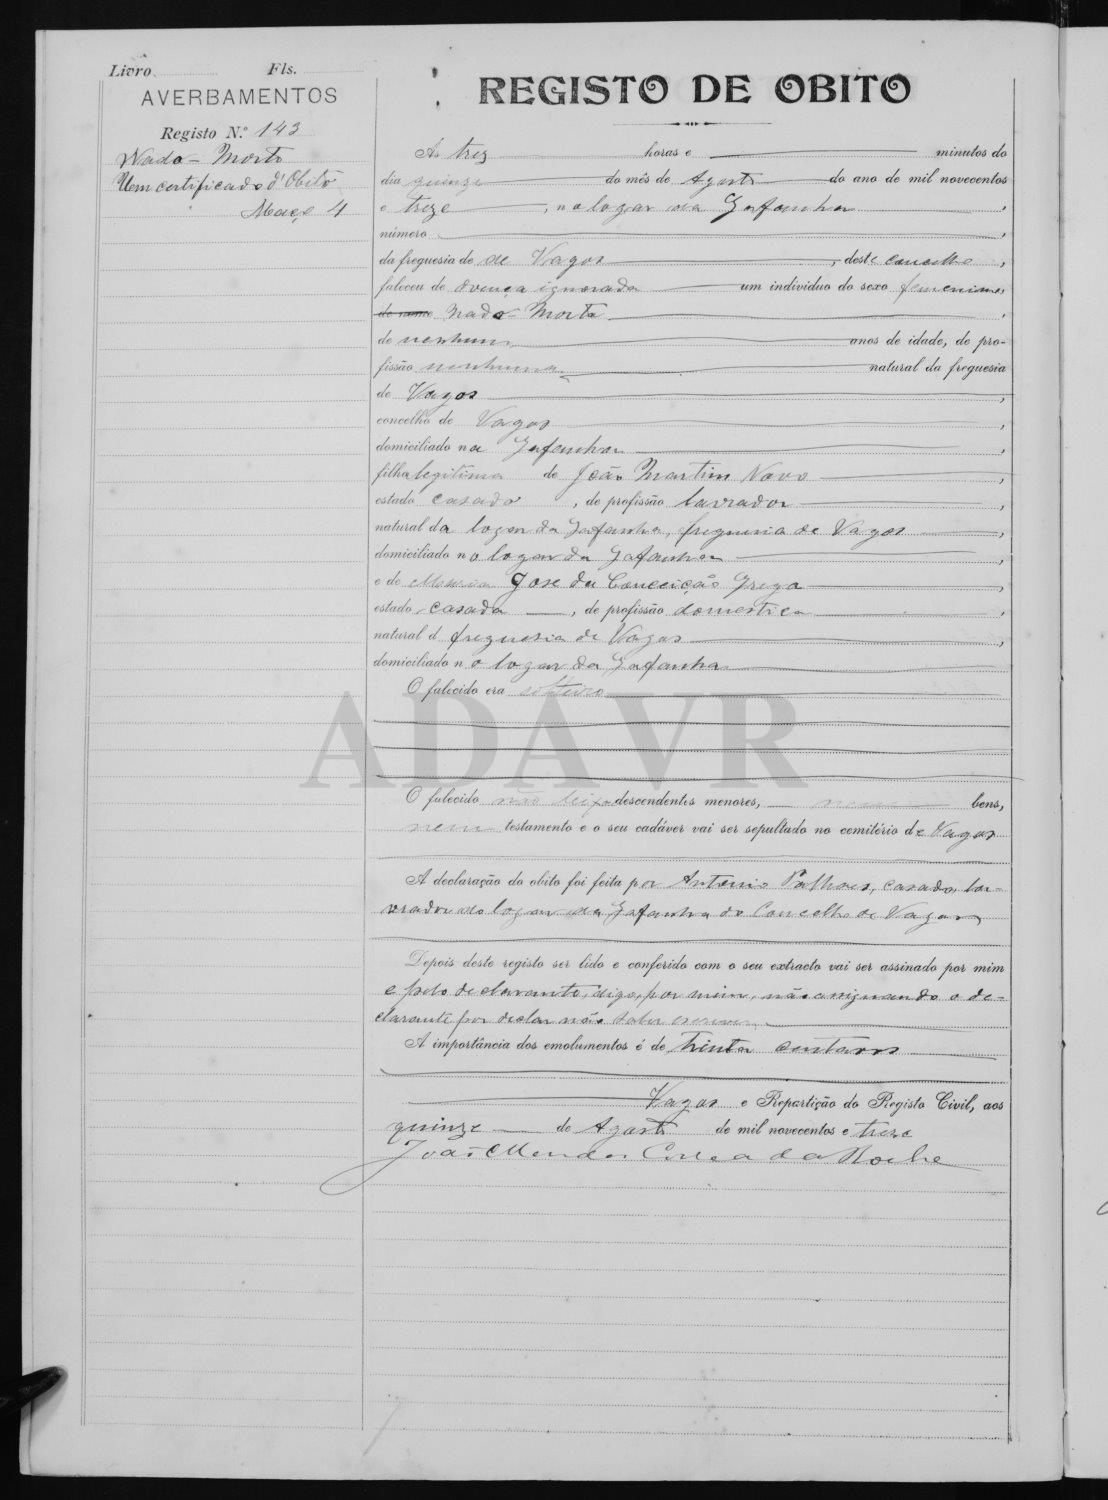 Livro Fls.
AVERBAMENTOS
Registo N.º 143
Nado-Morto
Um certificado d'Obito
Maço 4
REGISTO DE OBITO
Ás trez horas e minutos do
dia quinze do mês de Agosto do ano de mil novecentos
e treze, no logar da Gafanha,
número,
da freguesia de de Vagos, deste concelho,
faleceu de doença ignorada um individuo do sexo femenino,
de nome Nado-Morto,
de nenhum anos de idade, de pro-
fissão nenhuma natural da freguesia
de Vagos,
concelho de Vagos,
domiciliado na Gafanha,
filha legitima de João Martins Novo,
estado casado, de profissão lavrador,
natural da logar da Gafanha, freguesia de Vagos,
domiciliado no logar da Gafanha,
e de Maria Jose da Conceição Grega,
estado casada, de profissão domestica,
natural d freguesia de Vagos,
domiciliado no logar da Gafanha
O falecido era solteiro
ADAVR
O falecido não deixa descendentes menores, nem bens,
nem testamento e o seu cadáver vai ser sepultado no cemitério de Vagos
A declaração do obito foi feita por Antonio casado, la-
vrador do logar da Gafanha do Concelho de Vagos,
Depois deste registo ser lido e conferido com o seu extracto vai ser assinado por mim
e pelo declarante, digo, por mim, não assignando o de-
clarante por declar não saber escrever
A importância dos emolumentos é de trinta centavos
Vagos e Repartição do Registo Civil, aos
quinze de Agosto de mil novecentos e treze
João Mendes Correa da Rocha